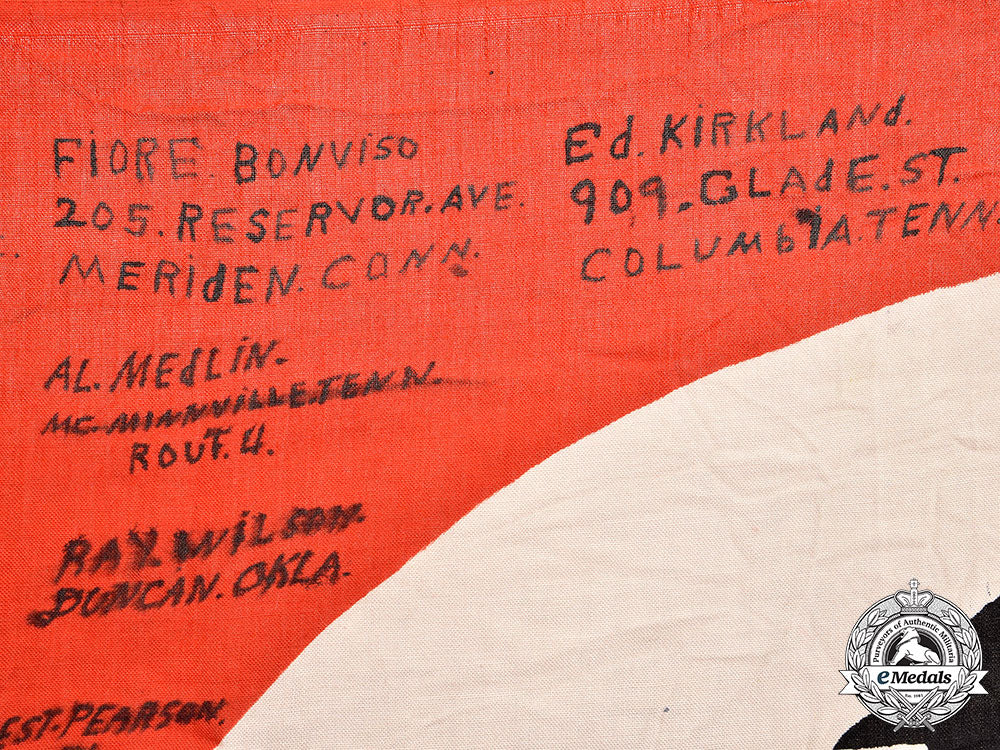 FIORE. BONVISO
205. RESERVOR. AVE.
MERIDEN. CONN.
Ed. KIRKLANd.
909. GLAdE. ST.
COLUMbIA. TENN
AL. MEdLIN.
MC. MINNVILLE. TENN.
ROUT. 4.
RAY. WILSON.
DUNCAN. OKLA.
EST. PEARSON.
Purveyors of Authentic Militaria
eMedals